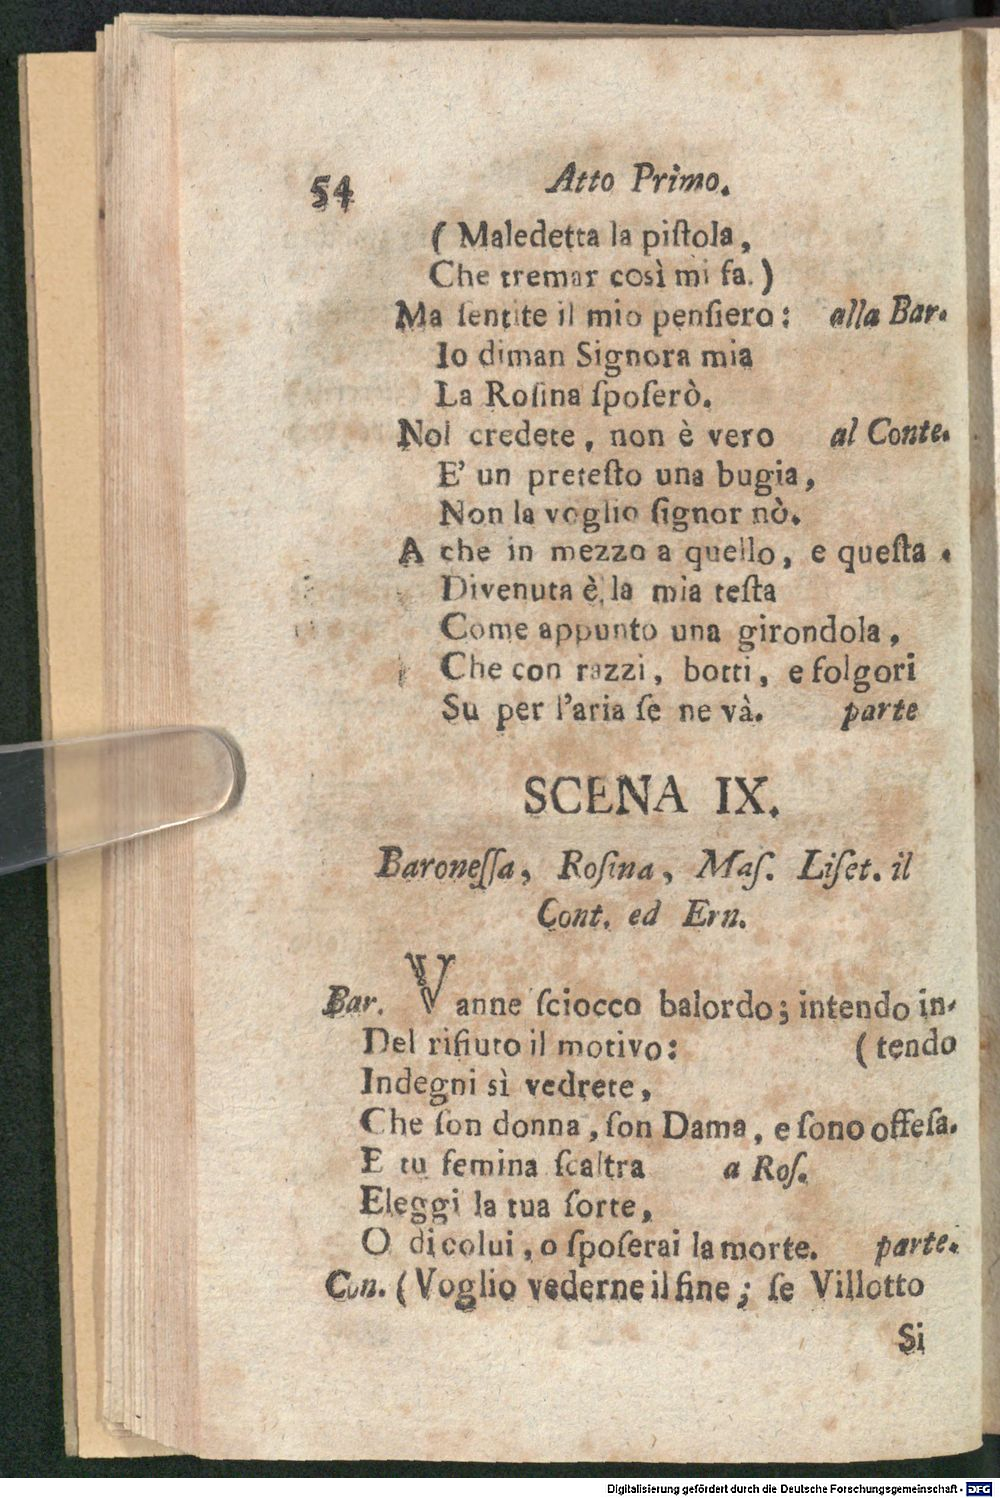 54 Atto Primo.
( Maledetta la piſtola,
Che tremar così mi fa.)
Ma ſentite il mio penſiero: alla Bar.
Io diman Signora mia
La Roſina ſpoſerò.
Nol credete, non è vero al Conte.
E' un preteſto una bugia,
Non la voglio ſignor nò.
A che in mezzo a quello, e queſta .
Divenuta è la mia teſta
Come appunto una girondola,
Che con razzi, botti, e folgori
Su per l'aria ſe ne và. parte
SCENA IX.
Baroneſſa, Roſina, Maſ. Liſet. il
Cont. ed Ern.
Bar. Vanne ſciocco balordo; intendo in-
Del rifiuto il motivo: ( tendo
Indegni sì vedrete,
Che ſon donna, ſon Dama, e ſono offeſa.
E tu femina ſcaltra a Roſ.
Eleggi la tua ſorte,
O di colui, o ſpoſerai la morte. parte.
Con. ( Voglio vederne il fine; ſe Villotto
Si
Digitalisierung gefördert durch die Deutsche Forschungsgemeinschaft - DFG